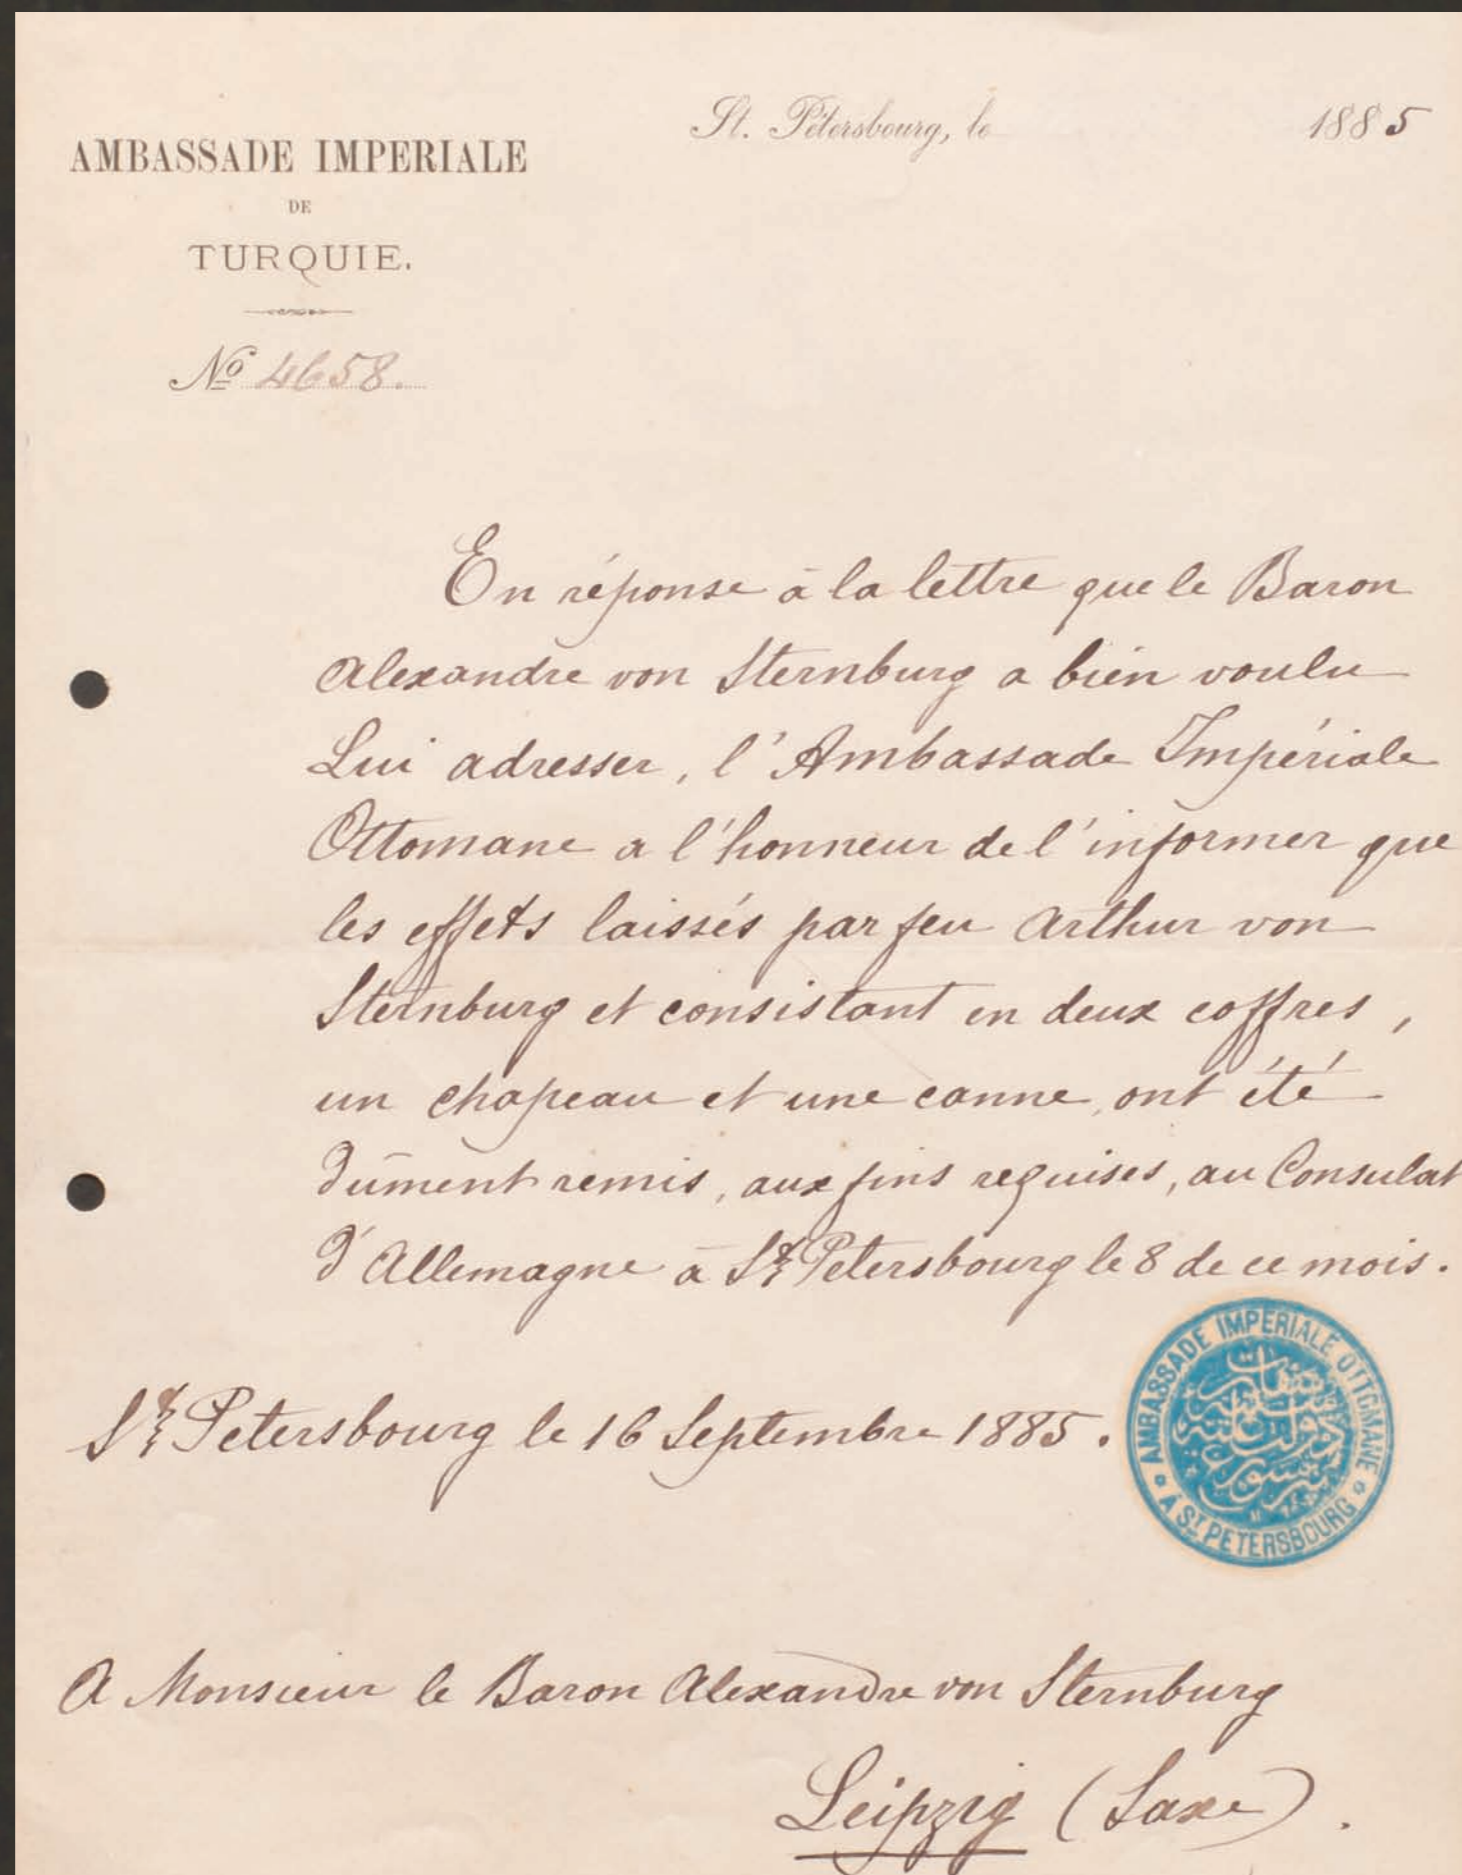 St. Pétersbourg, le 1885
AMBASSADE IMPERIALE
DE
TURQUIE.
Nº 4658.
En réponse à la lettre que le Baron
Alexandre von Sternburg a bien voulu
Lui adresser, l'Ambassade Impériale
Ottomane a l'honneur de l'informer que
les effets laissés par feu Arthur von
Sternburg et consistant en deux coffres,
un chapeau et une canne, ont été
dûment remis, aux fins requises, au Consulat
d'Allemagne à St Petersbourg le 8 de ce mois.
St Petersbourg le 16 Septembre 1885.
AMBASSADE IMPERIALE OTTOMANE
À ST PETERSBOURG
A Monsieur le Baron Alexandre von Sternburg
Leipzig (Saxe).